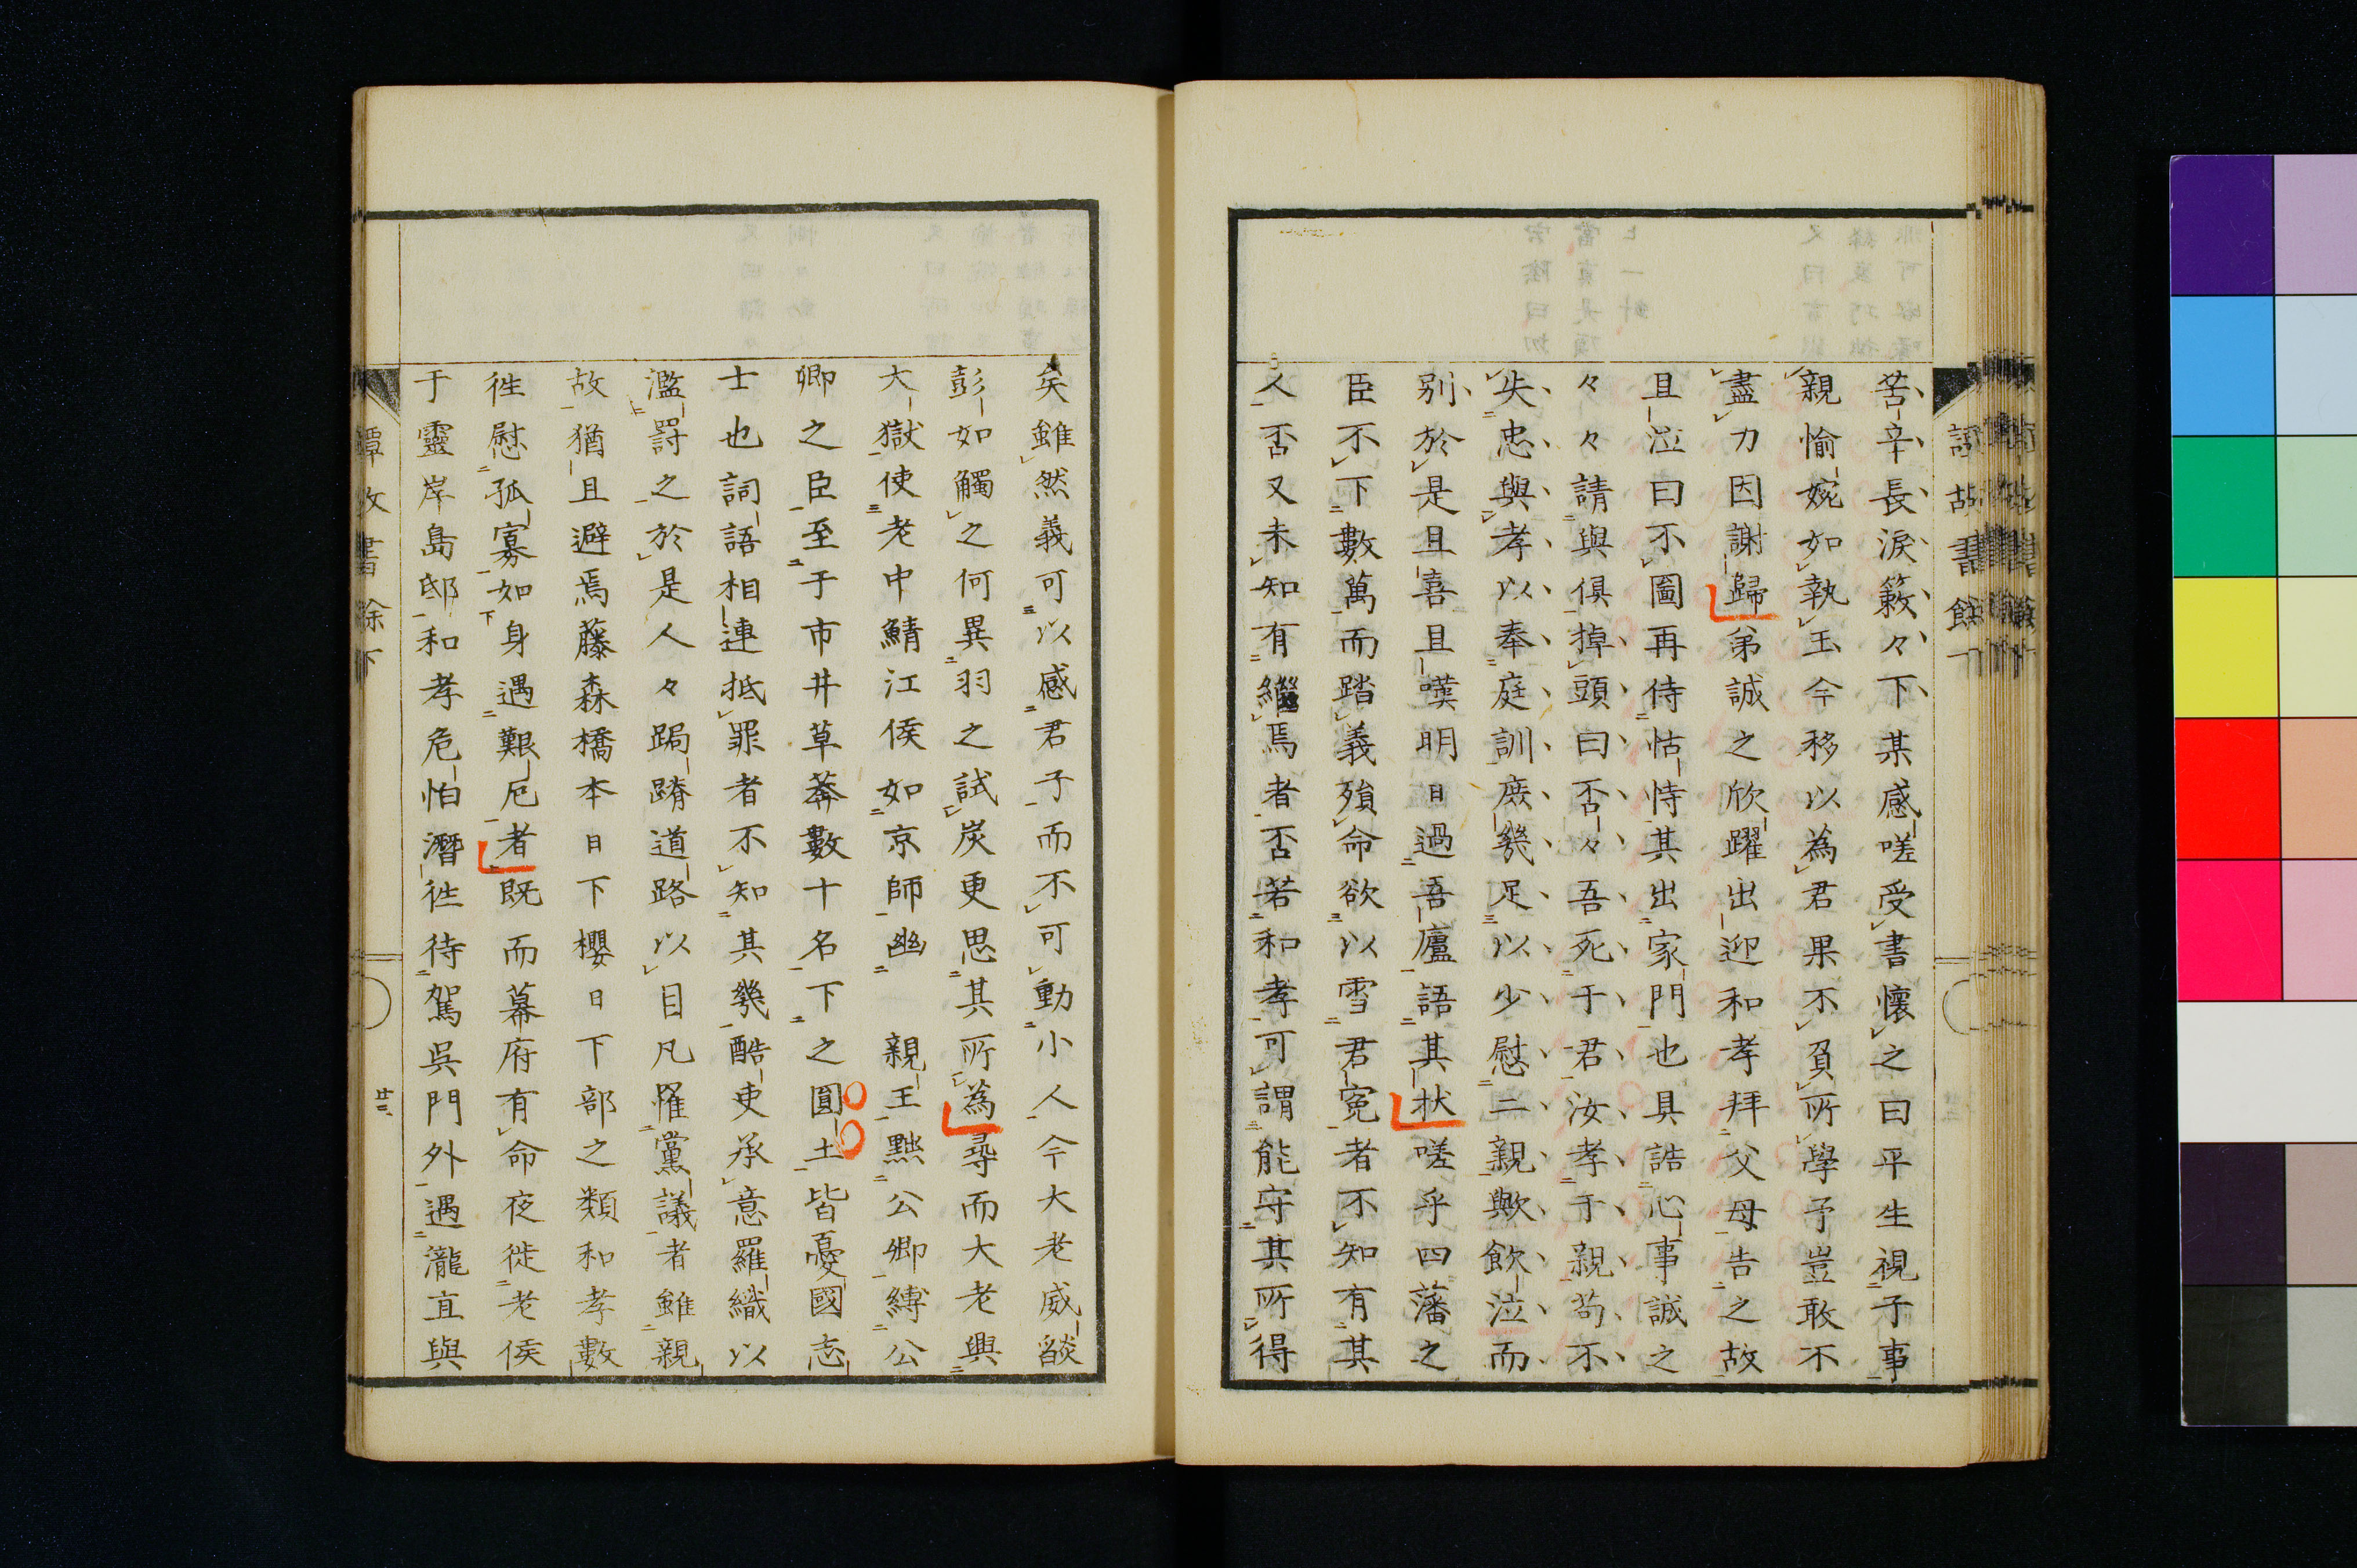 苦辛長淚簌々下某感嗟受書懷之曰平生視予事
親愉婉如執玉今移以為君果不負所學予豈敢不
盡力因謝歸弟誠之欣躍出迎和孝拜父母告之故
且泣曰不圖再侍怙恃其出家門也具誥心事誠之
々々請與俱掉頭曰否々吾死于君汝孝于親苟不
失忠與孝以奉庭訓庶幾足以少慰二親歟飲泣而
別於是且喜且嘆明日過吾廬語其狀嗟乎四藩之
臣不下數萬而踏義殞命欲以雪君冤者不知有其
人否又未知有繼焉者否若和孝可謂能守其所得
矣雖然義可以感君子而不可動小人今大老威燄
彭如觸之何異羽之試炭更思其所為尋而大老興
大獄使老中鯖江侯如京師幽親王黜公卿縛公
卿之臣至于市井草莽數十名下之圓土皆憂國志
士也詞語相連抵罪者不知其幾酷吏承意羅織以
濫罰之於是人々跼蹐道路以目凡罹黨議者雖親
故猶且避焉藤森橋本日下櫻日下部之類和孝數
徃慰孤寡如身遇艱厄者既而幕府有命夜徙老侯
于靈岸島邸和孝危怕潛徃待駕吳門外遇瀧直與